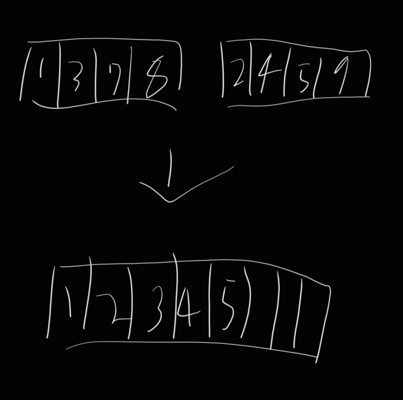 1 3 7 8 2 4 5 9
1 2 3 4 5